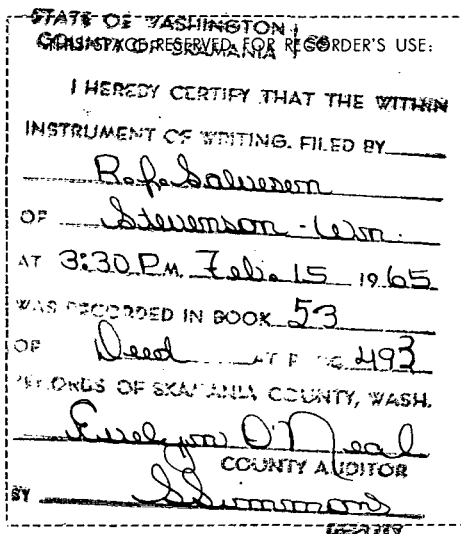 STATE OF WASHINGTON } SS
COUNTY OF SKAMANIA
THIS SPACE RESERVED FOR RECORDER'S USE:
I HEREBY CERTIFY THAT THE WITHIN
INSTRUMENT OF WRITING, FILED BY
R. J. Salvesen
OF Stevenson - Wn.
AT 3:30 P.M. Feb. 15 1965
WAS RECORDED IN BOOK 53
OF Deed AT PAGE 493
RECORDS OF SKAMANIA COUNTY, WASH.
Evelyn O'Neal
COUNTY AUDITOR
BY S Simmons
DEPUTY